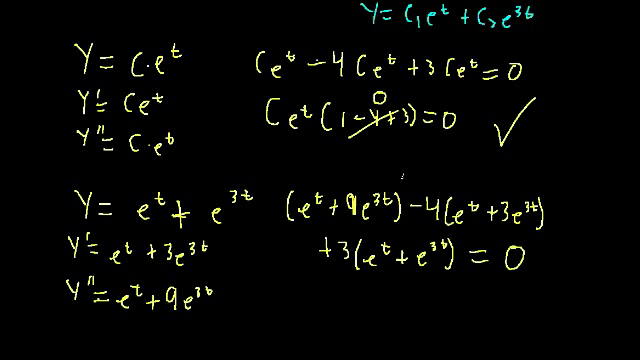 Y = C₁e^t + C₂e^3t
Y = C·e^t
Y' = Ce^t
Y'' = C·e^t
Ce^t - 4Ce^t + 3Ce^t = 0
0
Ce^t(1 - 4 + 3) = 0 ✓
Y = e^t + e^3t
Y' = e^t + 3e^3t
Y'' = e^t + 9e^3t
(e^t + 9e^3t) - 4(e^t + 3e^3t)
+3(e^t + e^3t) = 0